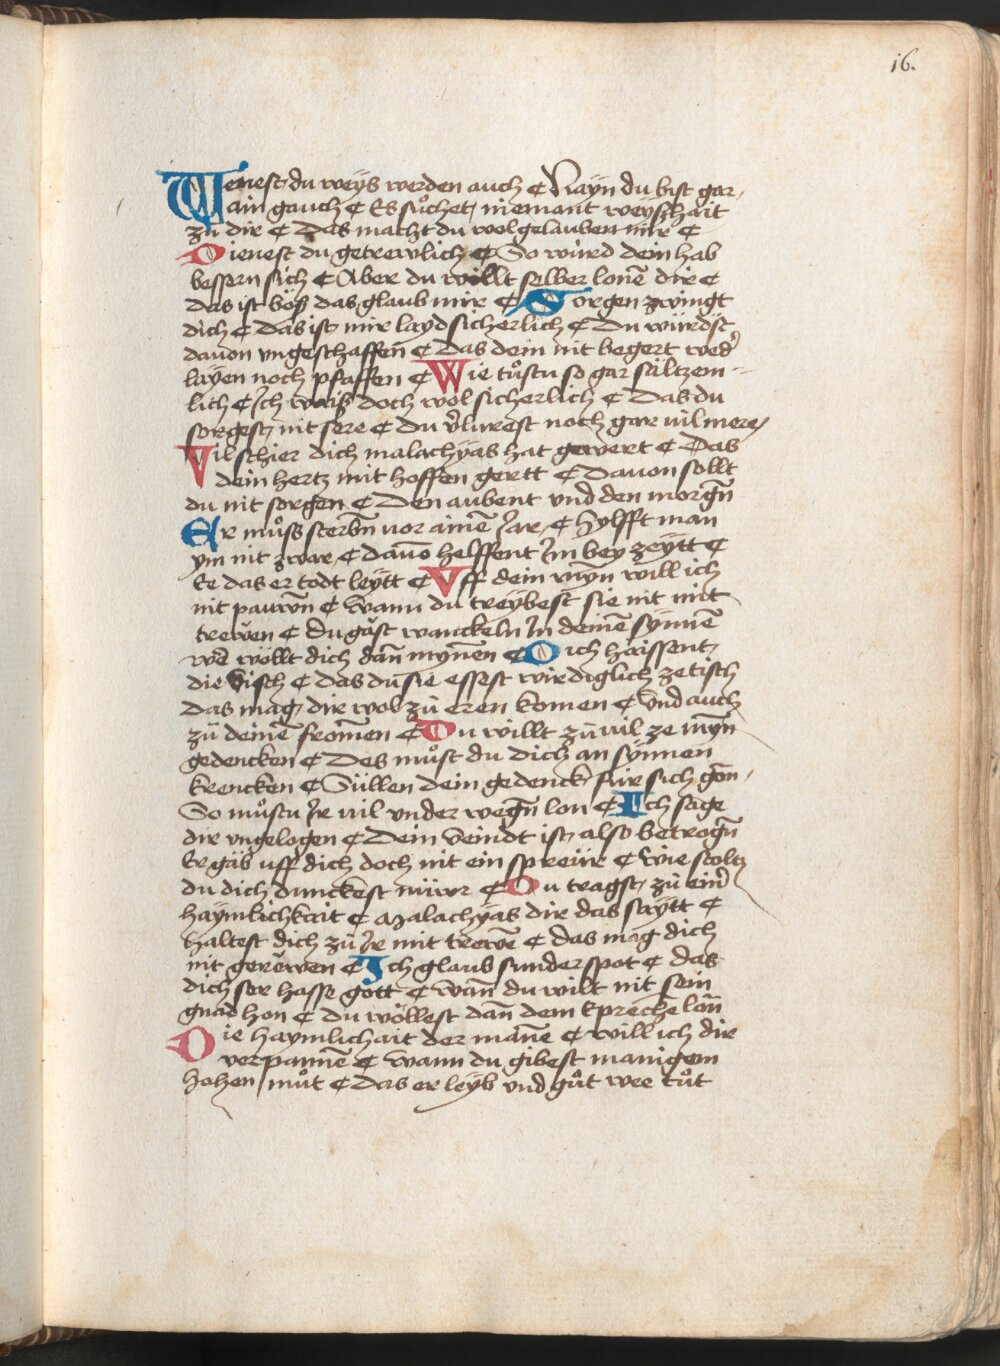 16.
Wenest du weÿs werden auch ¢ Nayn du bist gar
ain gauch ¢ Es sůchet niemant weyßhait
zů dir ¢ Das macht du wol gelauben mir ¢
Dienest du getrewlich ¢ So wirrd dein hab
bessern sich ¢ Aber du willt selber lonē dir ¢
das ist böß das glaub mir ¢ Sorgen zwingt
dich ¢ das ist mir layd sicherlich ¢ Du würdst
dauon vngeschaffen ¢ Das dein nit begert wedˀ
layen noch pfaffen ¢ Wie tůstu so gar sältzem
lich ¢ Ich waiß doch wol sicherlich ¢ Das du
sorgest nit sere ¢ du v̉lurest noch gar uil mere
Vil schier dich malachÿas hat gewert ¢ Das
dein hertz mit hoffen gertt ¢ Dauon sollt
du nit sorgen ¢ Den aubent und den morgn̄
Er můß sterbn̄ uor ainē Jar ¢ hÿlfft man
ym nit zwar ¢ dauō helffent Im bey zeÿtt ¢
Ee das er todt leÿtt ¢ Vff dein will ich
nit pauwn̄ ¢ wann du treÿbest sie nit mit
trewen ¢ du gäst wanckeln In deinē sÿnnē
we wöllt dich dan̄ mynen ¢ Dich haissent
die visch ¢ das du sie essest wirdiglich ze tisch
das mag dir wol zů eren komen ¢ Und auch
zů deinē fromen ¢ Du willt zů uil ze
gedencken ¢ Des můst du dich an sÿnnen
krencken ¢ Süllen dein gedenck für sich gon
So můstu Ir uil vnder wegn̄ lon ¢ Ich sage
dir vngelogen ¢ Dein veindt ist also betrogn̄
Er gäb uff dich doch nit ein spreür ¢ wie stoltz
du dich dunckest ¢ Du tragst zů einˀ
haÿmlichkait ¢ Malachÿas dir das saÿtt ¢
haltest dich zů Ir mit trewē ¢ das mag dich
nit gerewen ¢ Ich glaub sunder spot ¢ das
dich ser hasse gott ¢ wan̄ du wilt nit sein
gnad hon ¢ du wöllest dan̄ dem lon̄
Die haymlichait der manē ¢ will ich dir
verpannē ¢ wann du gibest manigem
hohen můt ¢ das er leÿb vnd gůt wee tůt